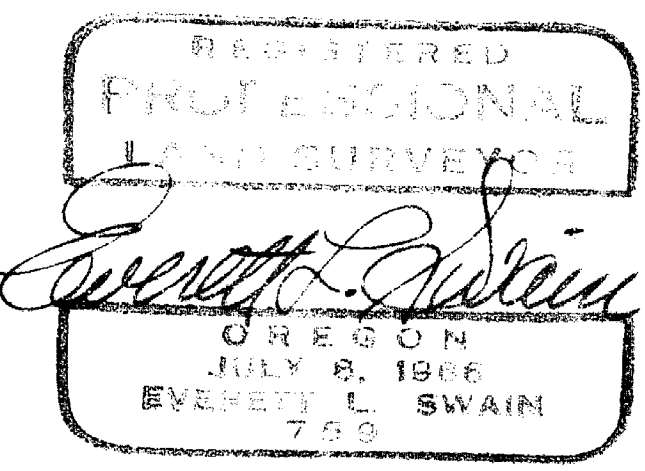 REGISTERED
PROFESSIONAL
LAND SURVEYOR
Everett L. Swain
OREGON
JULY 8, 1966
EVERETT L. SWAIN
759